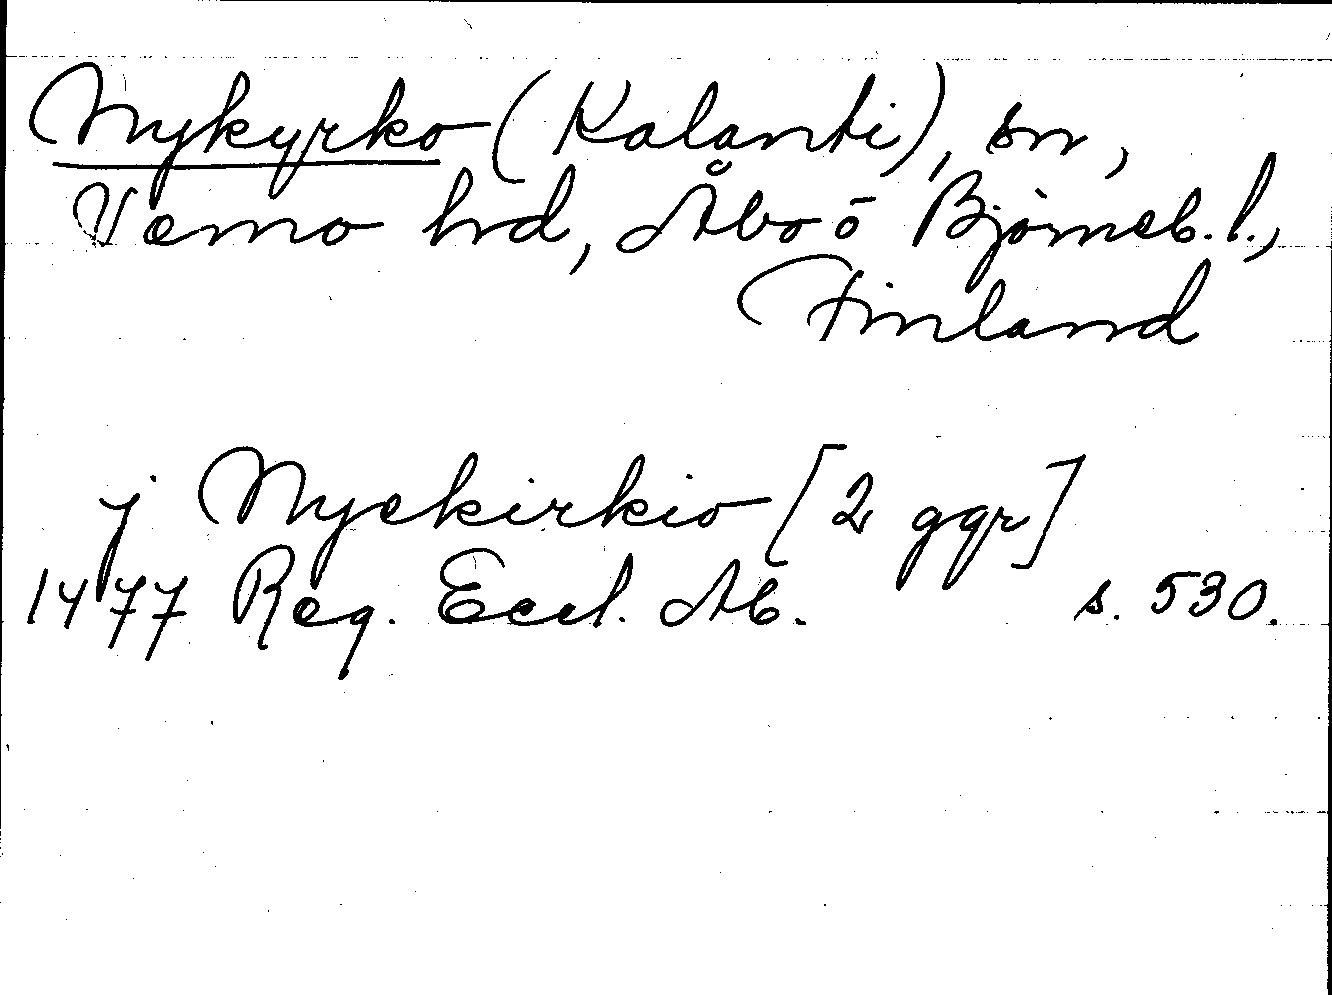 Nykyrko (Kalanti), sn,
Vemo hd, Åbo o Björneb. l.,
Finland
j Nyekirkio [2 ggr]
1477 Reg. Eccl. Ab. s. 530.